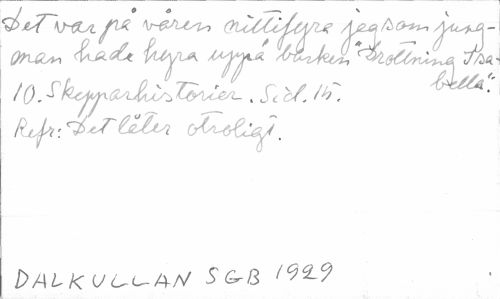 Det var på våren nittifyra jag som jung-
man hade hyra uppå barken "Drottning Isa-
bella".
10. Skepparhistorier. Sid. 15.
Refr: Det låter otroligt.
DALKULLAN SGB 1929